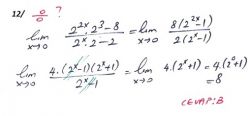 12/ 0/0 ?
lim x→0 (2^2x . 2^3 - 8)/(2^x . 2 - 2) = lim x→0 8(2^2x - 1)/2(2^x - 1)
lim x→0 4.(2^x - 1)(2^x + 1)/(2^x - 1) = lim x→0 4.(2^x + 1) = 4.(2^0 + 1)
= 8
CEVAP: B